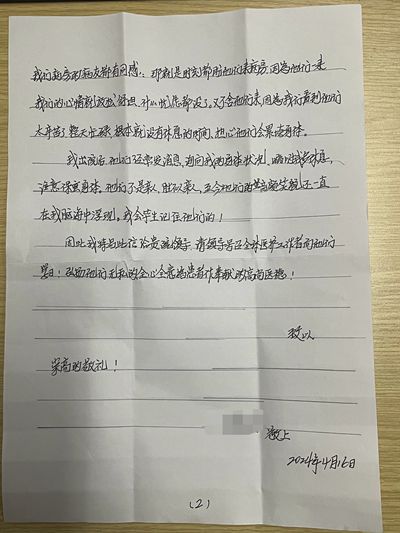 我们病房的病友都有同感：那就是时刻都盼他们来病房，因为他们一来
我们的心情就放松舒坦，什么忧愁都没了，又不舍他们来，因为我们看到他们
太辛苦了，整天忙碌，根本就没有休息的时间，担心他们会累坏身体。
我出院后，他们经常发消息，询问我的身体状况，嘱咐我多休息，
注意保重身体，他们不是亲人，胜似亲人，至今他们的音容笑貌还一直
在我脑海中浮现，我会毕生记住他们的！
因此我将此信给贵院领导，请领导号召全体医护工作者向他们
学习！弘扬他们无私的全心全意为患者作奉献的高尚医德！
致以
崇高的敬礼！
敬上
2024年4月16日
(2)